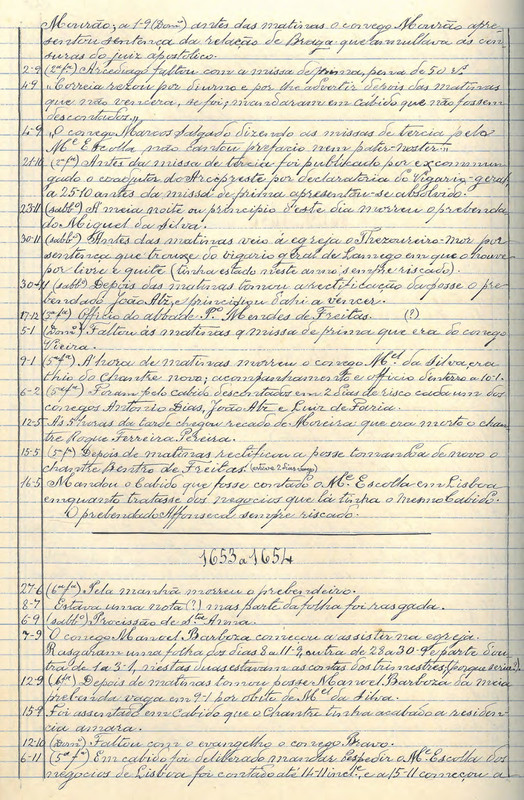 Mourão; a 1-9 (Domº) antes das matinas o conego Mourão apre-
sentou sentença da relação de Braga que annullava as cen-
suras do juiz apostolico.
2-9 (2ª fª) Arcediago faltou com a missa de prima, pena de 50 rs.
4-9 "Correia rezou por diurno e por lhe advertir depois das matinas
que não vencera, se foi; mandaram em Cabido que não fossem
descontados."
4-9 "O conego Marcos Salgado dizendo as missas de tercia pelo
Me Escolla não cantou prefacio nem pater-noster."
21-10 (2ª fª) Antes da missa de tercia foi publicado por excommun-
gado o coadjutor do Arcipreste por declaratoria do Vigario-geral,
a 25-10 antes da missa de prima apresentou-se absolvido.
23-11 (sabbº) Á meia noite ou principio d'este dia morreu o prebenda-
do Miguel da Silva.
30-11 (sabbº) Antes das matinas veio á egreja o Thezoureiro-Mor por
sentença que trouxe do vigario geral de Lamego em que o houve
por livre e quite (tinha estado neste anno sempre riscado).
30-11 (sabbº) Depois das matinas tomou a rectificação da posse o pre-
bendado João Abz e principiou d'ahi a vencer.
17-12 (5ª fª) Officio do abbade Pº Mendes de Freitas. (?)
5-1 (Domº) Faltou ás matinas q missa de prima que era do conego
Vieira.
9-1 (5ª fª) A hora de matinas morreu o conego Mel da Silva, era
thio do Chantre novo; acompanhamento e officio d'enterro a 10-1.
6-2 (5ª fª) Foram pelo cabido descontados em 2 dias de risco cada um dos
conegos Antonio Dias, João Abz e Luiz de Faria.
12-5 Ás 5 horas da tarde chegou recado de Moreira que era morto o chan-
tre Roque Ferreira Pereira.
15-5 (5ª fª) Depois de matinas rectificou a posse tomando-a de novo o
chantre Bento de Freitas. (esteve 2 dias longe)
16-5 Mandou o Cabido que fosse contado o Me Escolla em Lisboa
emquanto tratasse dos negocios que lá tinha o mesmo Cabido.
O prebendado Affonseca, sempre riscado.
1653 a 1654
27-6 (6ª fª) Pela manhã morreu o prebendeiro.
8-7 Estava uma nota (?) mas parte da folha foi rasgada.
6-9 (sabbº) Procissão de Sta Anna.
7-9 O conego Manoel Barboza começou a assistir na egreja.
Rasgaram uma folha dos dias 8 a 11-9, outra de 28 a 30-9 e parte d'ou-
tra de 1 a 3-1, n'estas duas estavam as contas dos trimestres (porque seria?).
12-9 (6ª fª) Depois de matinas tomou posse Manoel Barboza da meia
prebenda vaga em 9-1 por obito de Mel da Silva.
15-9 Foi assentado em Cabido que o Chantre tinha acabado a residen-
cia amara.
12-10 (Domº) Faltou com o evangelho o conego Bravo.
6-11 (5ª fª) Em cabido foi deliberado mandar espedir o Me Escolla dos
negocios de Lisboa foi contado até 14-11 incle, e a 15-11 começou a